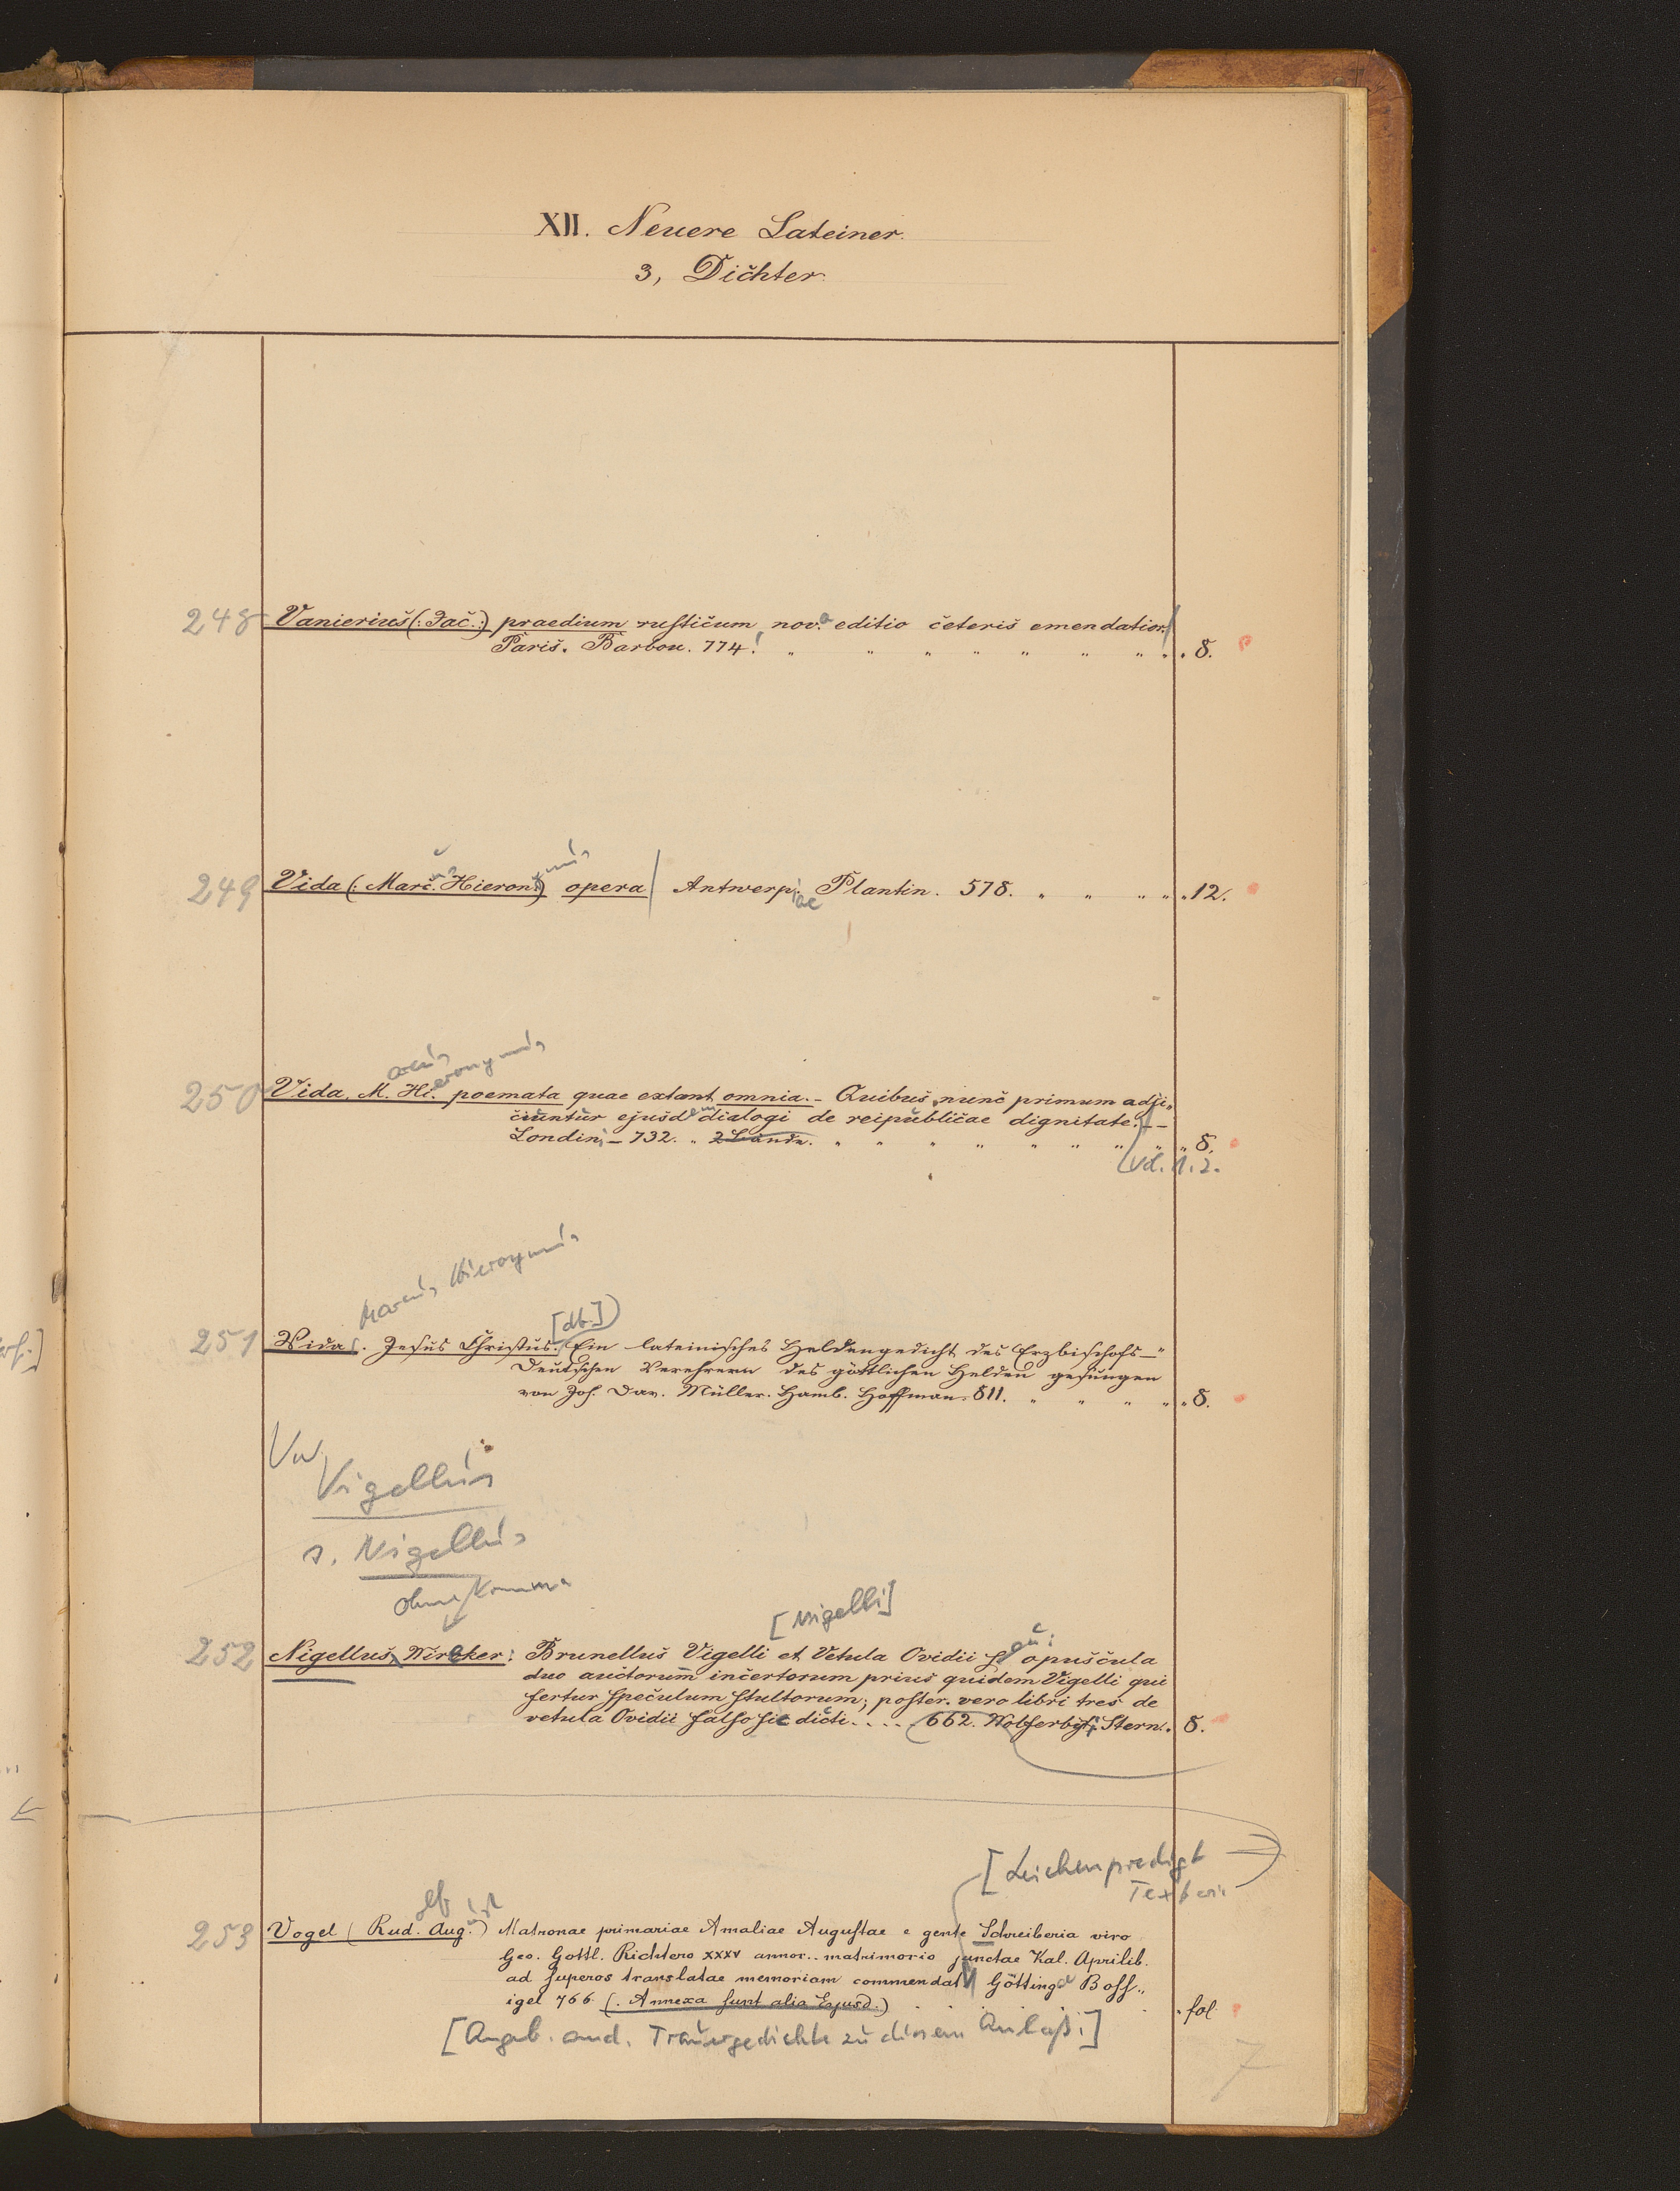 XII. Neuere Lateiner.
3, Dichter.
248 Vanierius (: Jac.:) praedium rusticum, nova editio ceteris emendatior. /
Paris. Barbou. 774. " " " " " " " " 8.
249 Vida (: Marcus Hieronymus) opera / Antwerpiae Plantin. 578. " " " " " 12.
arcus eronymus
250 Vida, M. Hi. poemata quae extant omnia. – Quibus nunc primum adji„
ciuntur ejusdem dialogi de reipublicae dignitate. –
Londini – 732. " 2 Bände. " " " " " " " " 8.
Vol. 1. 2.
Marcus Hieronymus
[dt.]
251 Vida. Jesus Christus. Ein lateinisches Heldengedicht des Erzbischofs –"
Deutschen Verehrern des göttlichen Helden gesungen
von Joh. Dav. Müller. Hamb. Hoffman. 811. " " " " 8.
Vw
Vigellus
s. Nigellus
ohne Komma
[Nigelli]
252 Nigellus, Wireker: Brunellus Vigelli et Vetula Ovidii seu: opuscula
duo auctorum incertorum prius quidem Vigelli qui
fertur speculum stultorum; poster. vero libri tres de
vetula Ovidii falso sic dicti. . . . . 662. Wolferbyti Stern. 8.
[Leichenpredigt
Text
olf ust
253 Vogel (Rud. Aug.) Matronae primariae Amaliae Augustae e gente Schreiberia viro
Geo. Gottl. Richtero XXXV annor. matrimonio junctae Kal. Aprilib.
ad superos translatae memoriam commendat / Göttingae Boss„
igel 766. (. Annexa sunt alia Ejusd.) . . . . . fol.
[Angeb. and. Trauergedichte zu diesem Anlaß.]
7